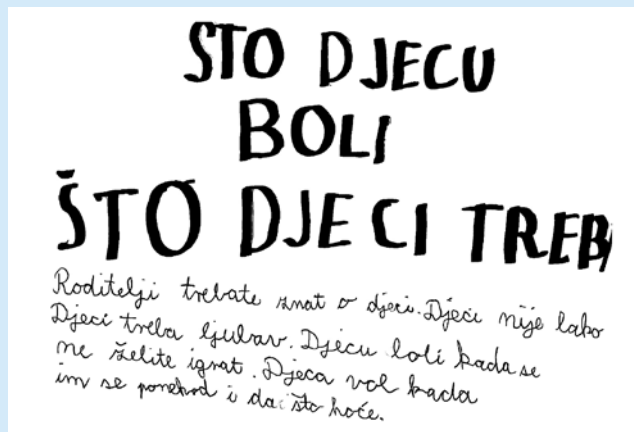 STO DJECU
BOLI
ŠTO DJECI TREB
Roditelji trebate znat o djeci. Djeci nije lako
Djeci treba ljubav. Djecu boli kada se
ne želite igrat. Djeca vol kada
im se ponekad i da što hoće.